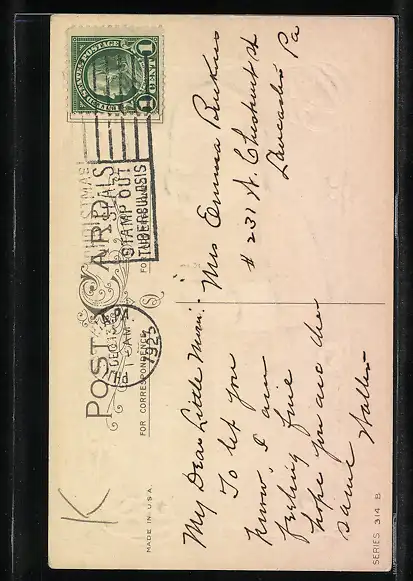 POST CARD
FOR CORRESPONDENCE
UNITED STATES POSTAGE
1 CENT 1
CHRISTMAS
SEALS
STAMP OUT
TUBERCULOSIS
DEC
1 AM
1923
PA
My Dear Little Mimi:-
To let you
know I am
feeling fine
hope you are the
same Walter
Miss Emma
# 231 N. Chestnut st
Lancaster Pa
K
MADE IN U.S.A.
SERIES 314 B